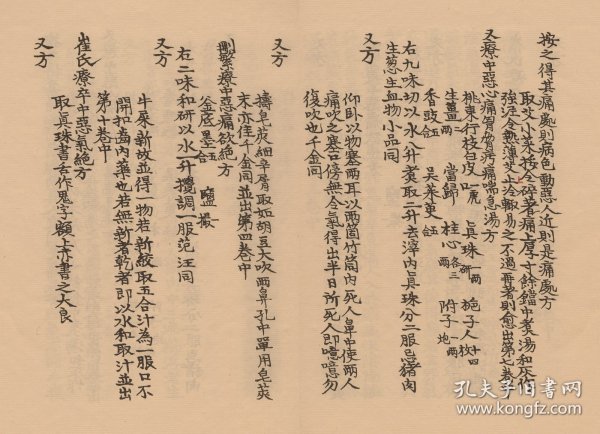 按之得其痛處則病色動惡人近則是痛處方
取艾小挼令碎著痛上厚寸餘鐺中煮湯和灰作
強泥令熱薄艾上冷輒易之不過再著則愈出第七卷中
又療中惡心痛胷脅疞痛喘急湯方
桃東行枝白皮一虎口 真珠一兩研 梔子人十四枚
生薑二兩 當歸 桂心各三兩 附子一兩炮
香豉五合 吳茱萸五合
右九味切以水八升煮取二升去滓內真珠分二服忌豬肉
生葱生血物小品同
又方
仰卧以物塞兩耳以兩箇竹筒內死人鼻中使兩人
痛吹之塞口傍無令氣得出半日所死人即噫噫勿
復吹也千金同
又方
擣皂莢細辛屑取如胡豆大吹兩鼻孔中單用皂莢
末亦佳千金同並出第四卷中
刪繁療中惡痛欲絕方
釜底墨五合 鹽一撮
右二味和研以水一升攪調一服范汪同
又方
牛屎新故並得一物若新絞取五合汁為一服口不
開扣齒內藥也若無新者乾者即以水和取汁並出
第十卷中
崔氏療卒中惡氣絕方
取真珠書舌作鬼字額上亦書之大良
又方
孔夫子旧书网
www.kongfz.com